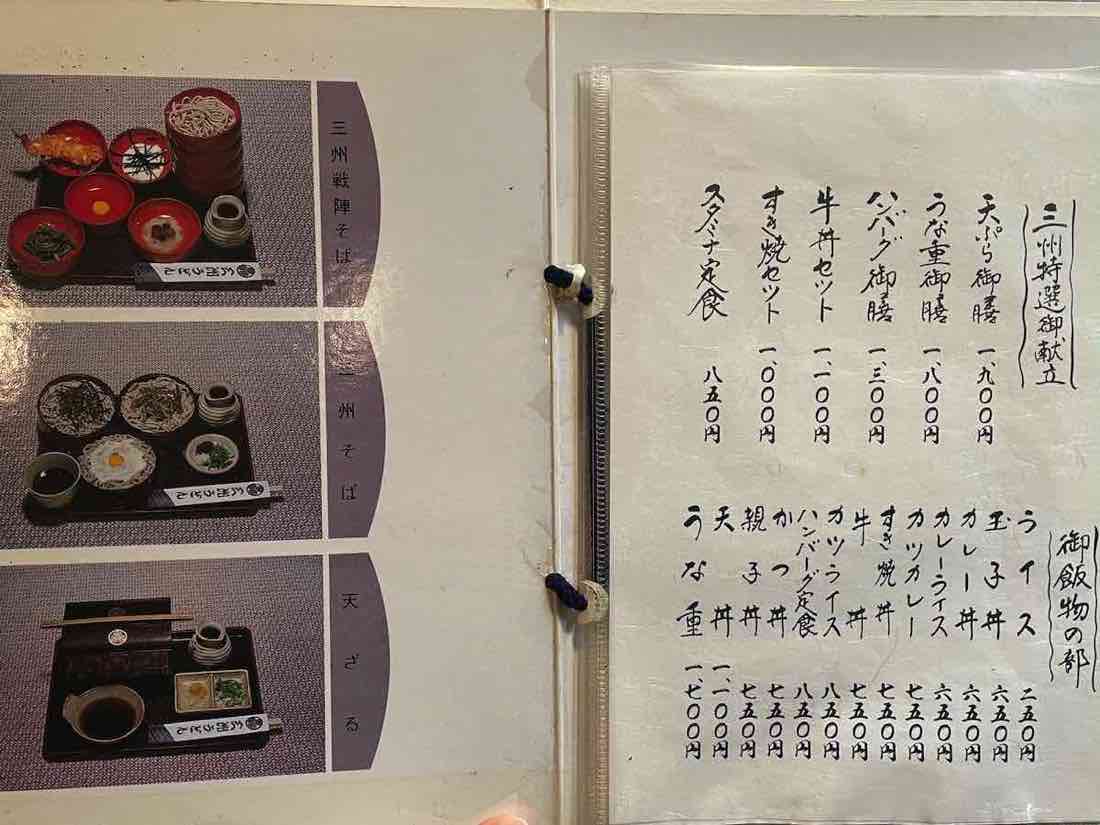 三州特選御献立
天ぷら御膳 一、九〇〇円
うな重御膳 一、八〇〇円
ハンバーグ御膳 一、三〇〇円
牛丼セット 一、一〇〇円
すき焼セット 一、〇〇〇円
スタミナ定食 八五〇円
御飯物の部
ライス 二五〇円
玉子丼 六五〇円
カレー丼 六五〇円
カレーライス 六五〇円
カツカレー 七五〇円
すき焼丼 七五〇円
牛丼 七五〇円
カツライス 八五〇円
ハンバーグ定食 八五〇円
かつ丼 七五〇円
親子丼 七五〇円
天丼 一、一〇〇円
うな重 一、七〇〇円
三州戦陣そば
三州そば
天ざる